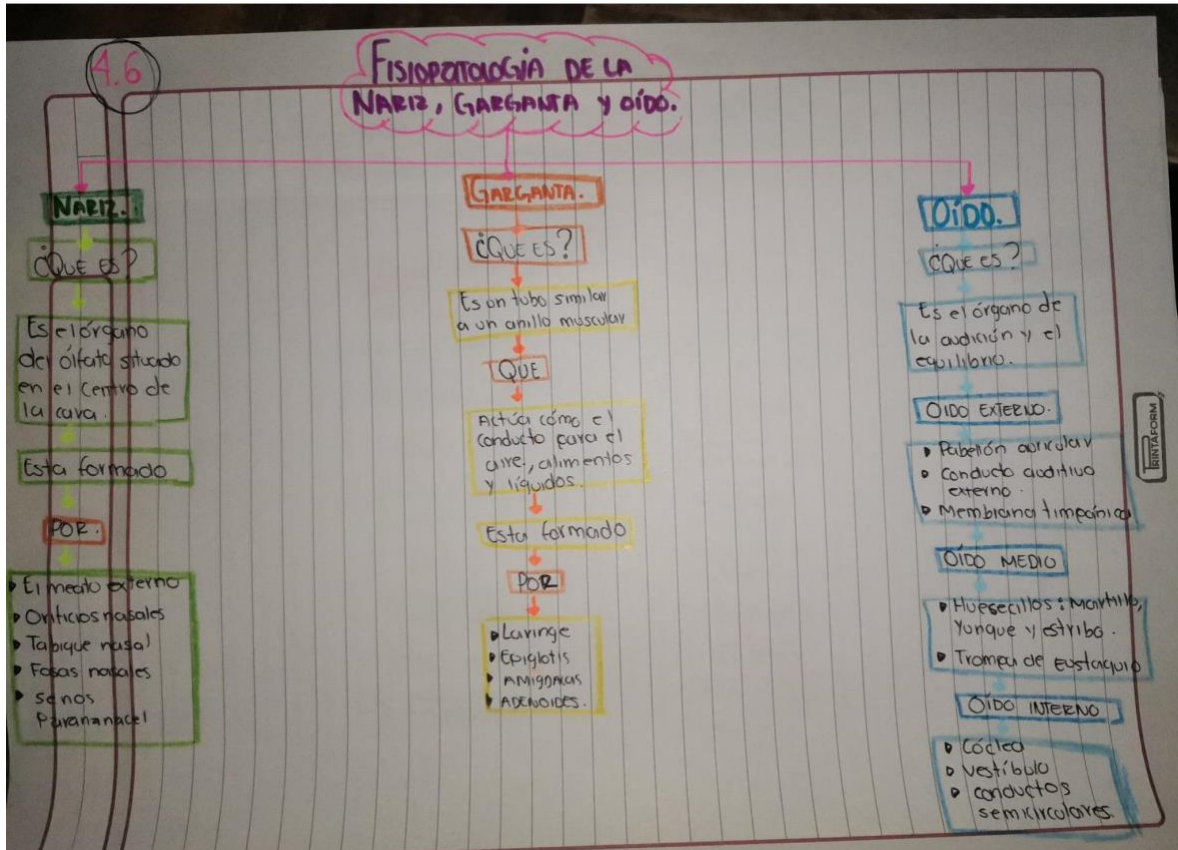 4.6
FISIOPATOLOGÍA DE LA
NARIZ, GARGANTA Y OÍDO.
NARIZ.
¿QUE ES?
Es el órgano
del ólfato situado
en el centro de
la cara.
Esta formado
POR.
El meato externo
Orificios nasales
Tabique nasal
Fosas nasales
senos
Parananacel
GARGANTA.
¿QUE ES?
Es un tubo similar
a un anillo muscular
QUE
Actúa cómo el
conducto para el
aire, alimentos
y líquidos.
Esta formado
POR
Laringe
Epiglotis
AMIGDALAS
ADENOIDES.
OÍDO.
¿QUE ES?
Es el órgano de
la audición y el
equilibrio.
OIDO EXTERNO.
Pabellón auricular
Conducto auditivo
externo.
Membrana timpánica
OÍDO MEDIO
Huesecillos: Martillo,
Yunque y estribo.
Trompa de eustaquio
OÍDO INTERNO
Cóclea
vestíbulo
conductos
semicirculares.
PRINTAFORM